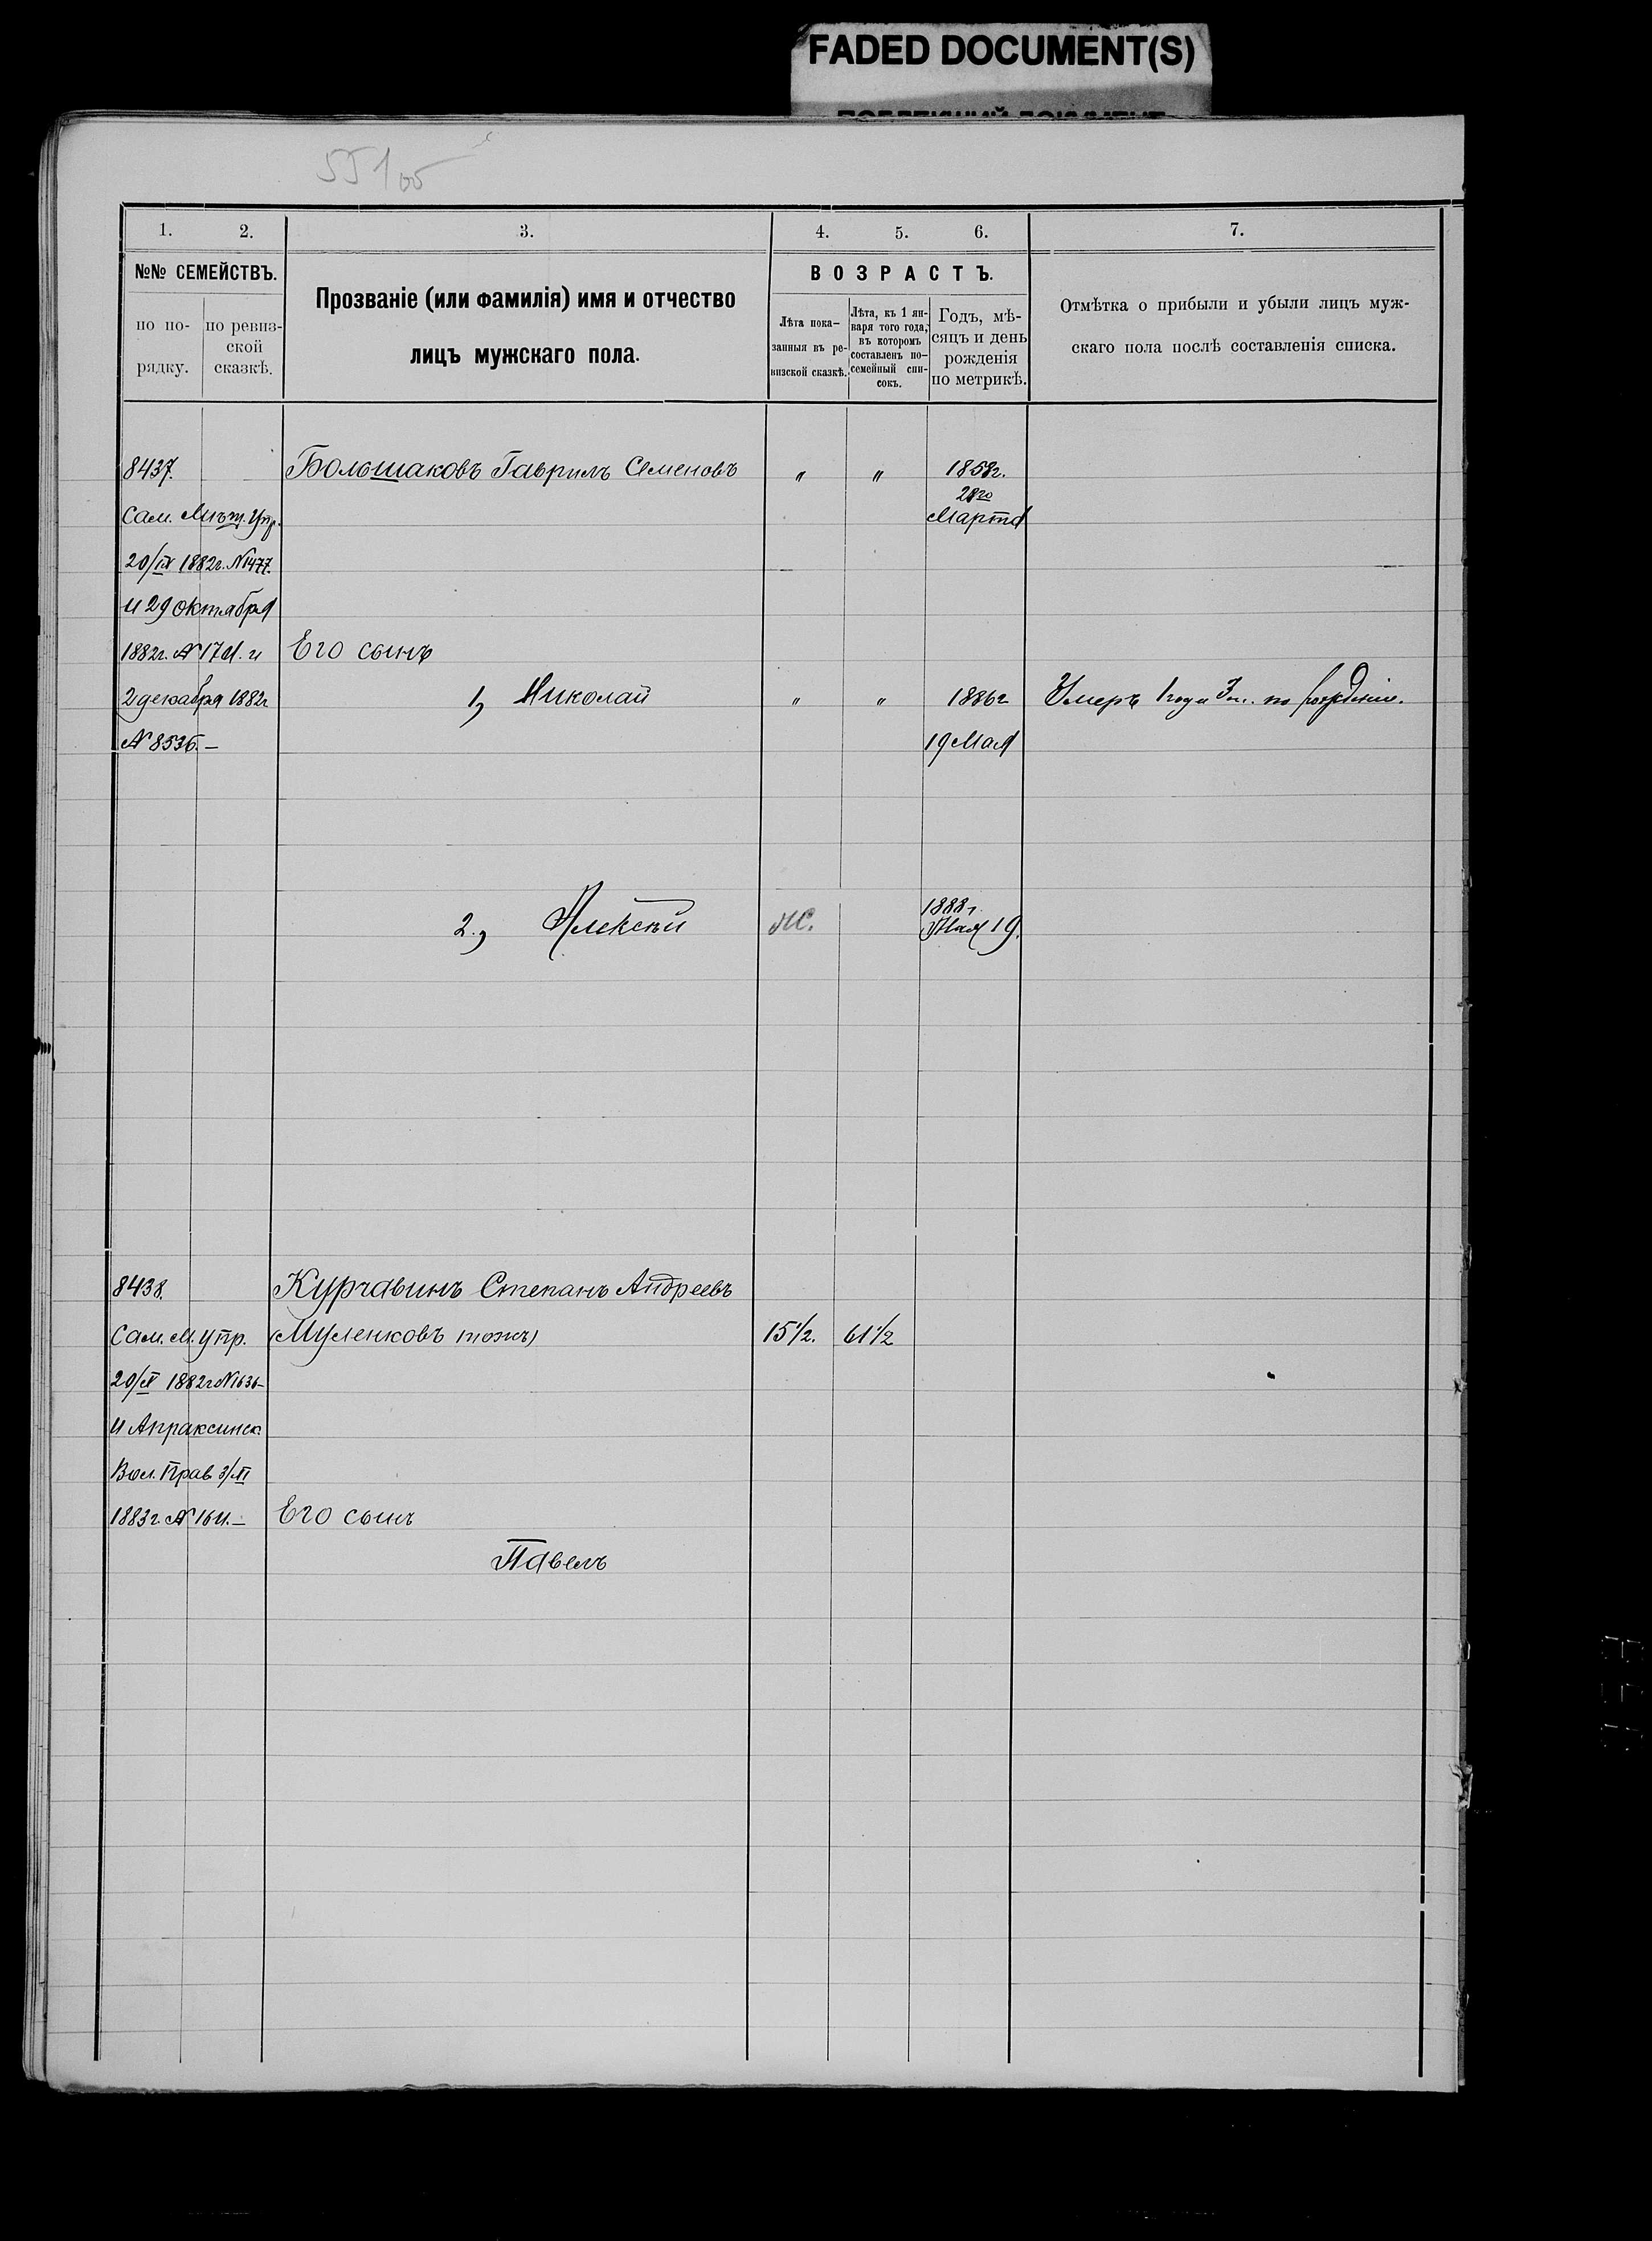 FADED DOCUMENT(S)
55100
1. 2. 3. 4. 5. 6. 7.
№№ СЕМЕЙСТВЪ.
по по-
рядку.
по ревиз-
ской
сказкѣ.
Прозваніе (или фамилія) имя и отчество
лицъ мужскаго пола.
ВОЗРАСТЪ.
Лѣта пока-
занныя въ ре-
визской сказкѣ.
Лѣта, къ 1 ян-
варя того года,
въ которомъ
составленъ по-
семейный спи-
сокъ.
Годъ, мѣ-
сяцъ и день
рожденія
по метрикѣ.
Отмѣтка о прибыли и убыли лицъ муж-
скаго пола послѣ составленія списка.
8437. Большаковъ Гавриилъ Семеновъ " " 1858г.
28го
Сам. Мѣщ. Упр. Марта
20/IX 1882г. №1477.
и 29 октября
1882г. № и Его сынъ
2 декабря 1882г 1, Николай " " 1886г Умеръ 1 года 3 м. по
№ 8536.– 19 Мая
1888г.
2., Алексѣй Мая 19.
8438. Курчавинъ Степанъ Андреевъ
Сам. М. Упр. (Муленковъ тожъ) 15½. 61½
20/X 1882г №1636–
и Апраксинск.
Вол. Прав. 1883г. № Его сынъ
Павелъ